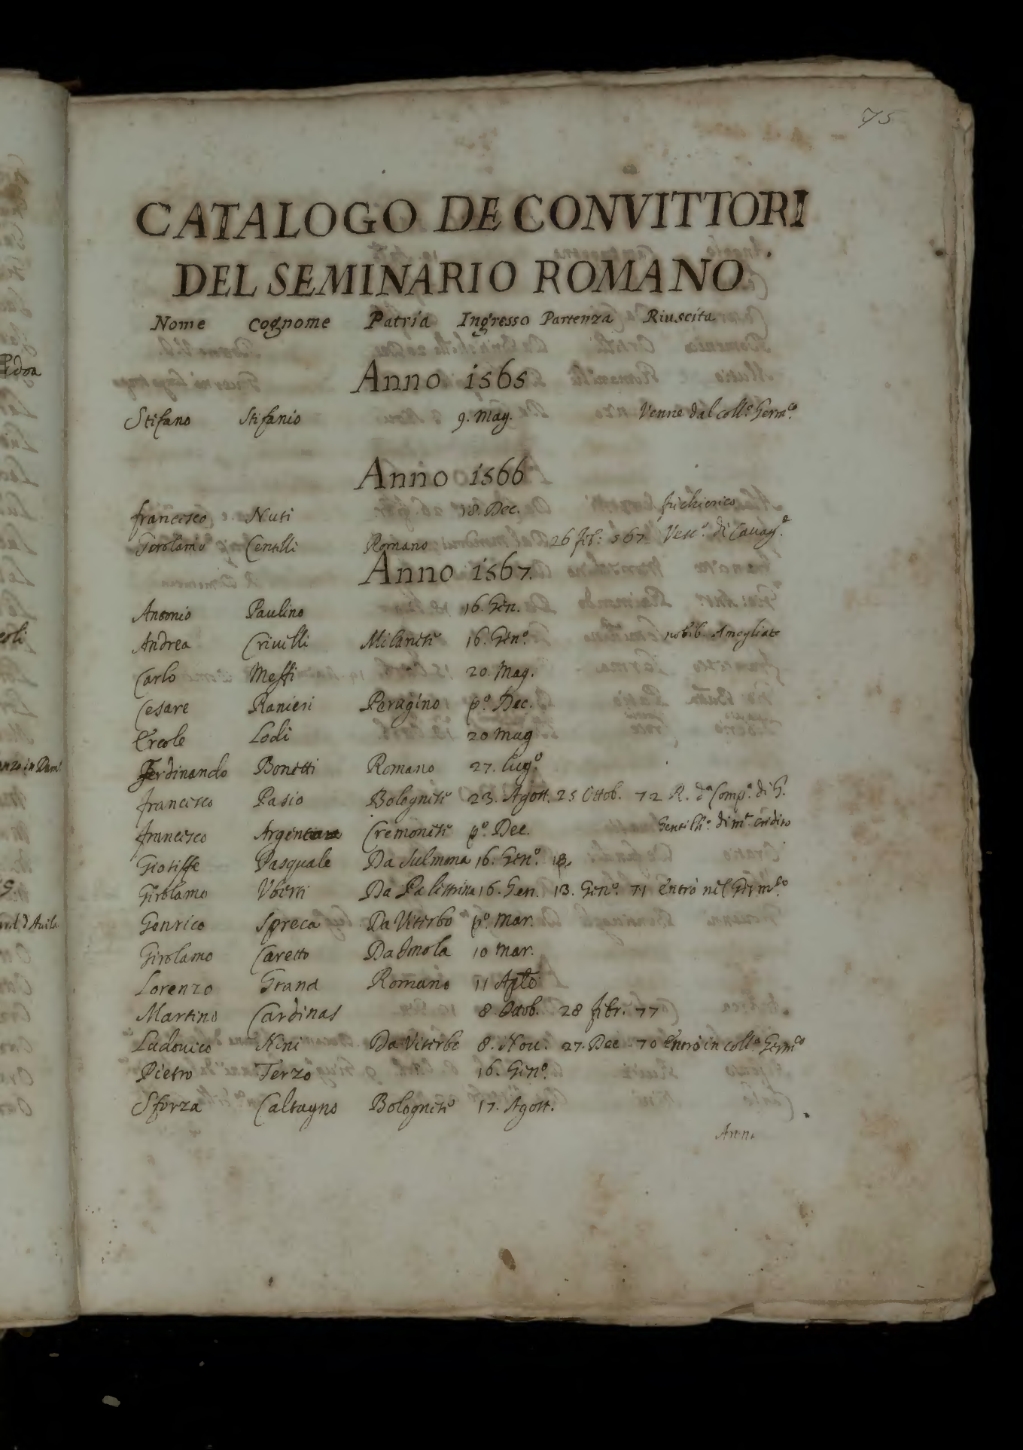 75
CATALOGO DE CONVITTORI
DEL SEMINARIO ROMANO
Nome Cognome Patria Ingresso Partenza Riuscita
Anno 1565
Stefano Stefanio 9. Mag. Venne dal coll.º Germ.º
Anno 1566
francesco Nuti 18. Dec.
Gerolamo Centelli Romano 26 febr: 567 Vesc.º di Cavag.e
Anno 1567.
Antonio Paulino 16. Gen.
Andrea Crivelli Milanese 16. Gen.º
Carlo Meffi 20. Mag.
Cesare Ranieri Perugino p.º Dec.
Ercole Lodi 20 mag
Ferdinando Bonetti Romano 27. lug.º
francesco Pasio Bolognese 23. Agost. 25 Ottob. 72 R. d.a Comp.a di G.
francesco Cremonese p.º Dec.
Gioseffe Pasquale Da Sulmona 16. Gen.º
Girolamo Uberti Da Palestrina 16. Gen. 13. Gen.º 71 entrò nel Germ.co
Genrico Spreca Da Viterbo p.º mar.
Girolamo Caretto Da Imola 10 mar.
Lorenzo Grana Romano 11
Martino Cardinas 8 Ottob. 28 febr. 77
Ludovico Nini Da Viterbo 8. Nov. 27. Dec. 70 Entrò in coll.º Germ.co
Pietro Terzo 16. Gen.º
Sforza Caltagno Bolognese 17. Agost.
Ann.